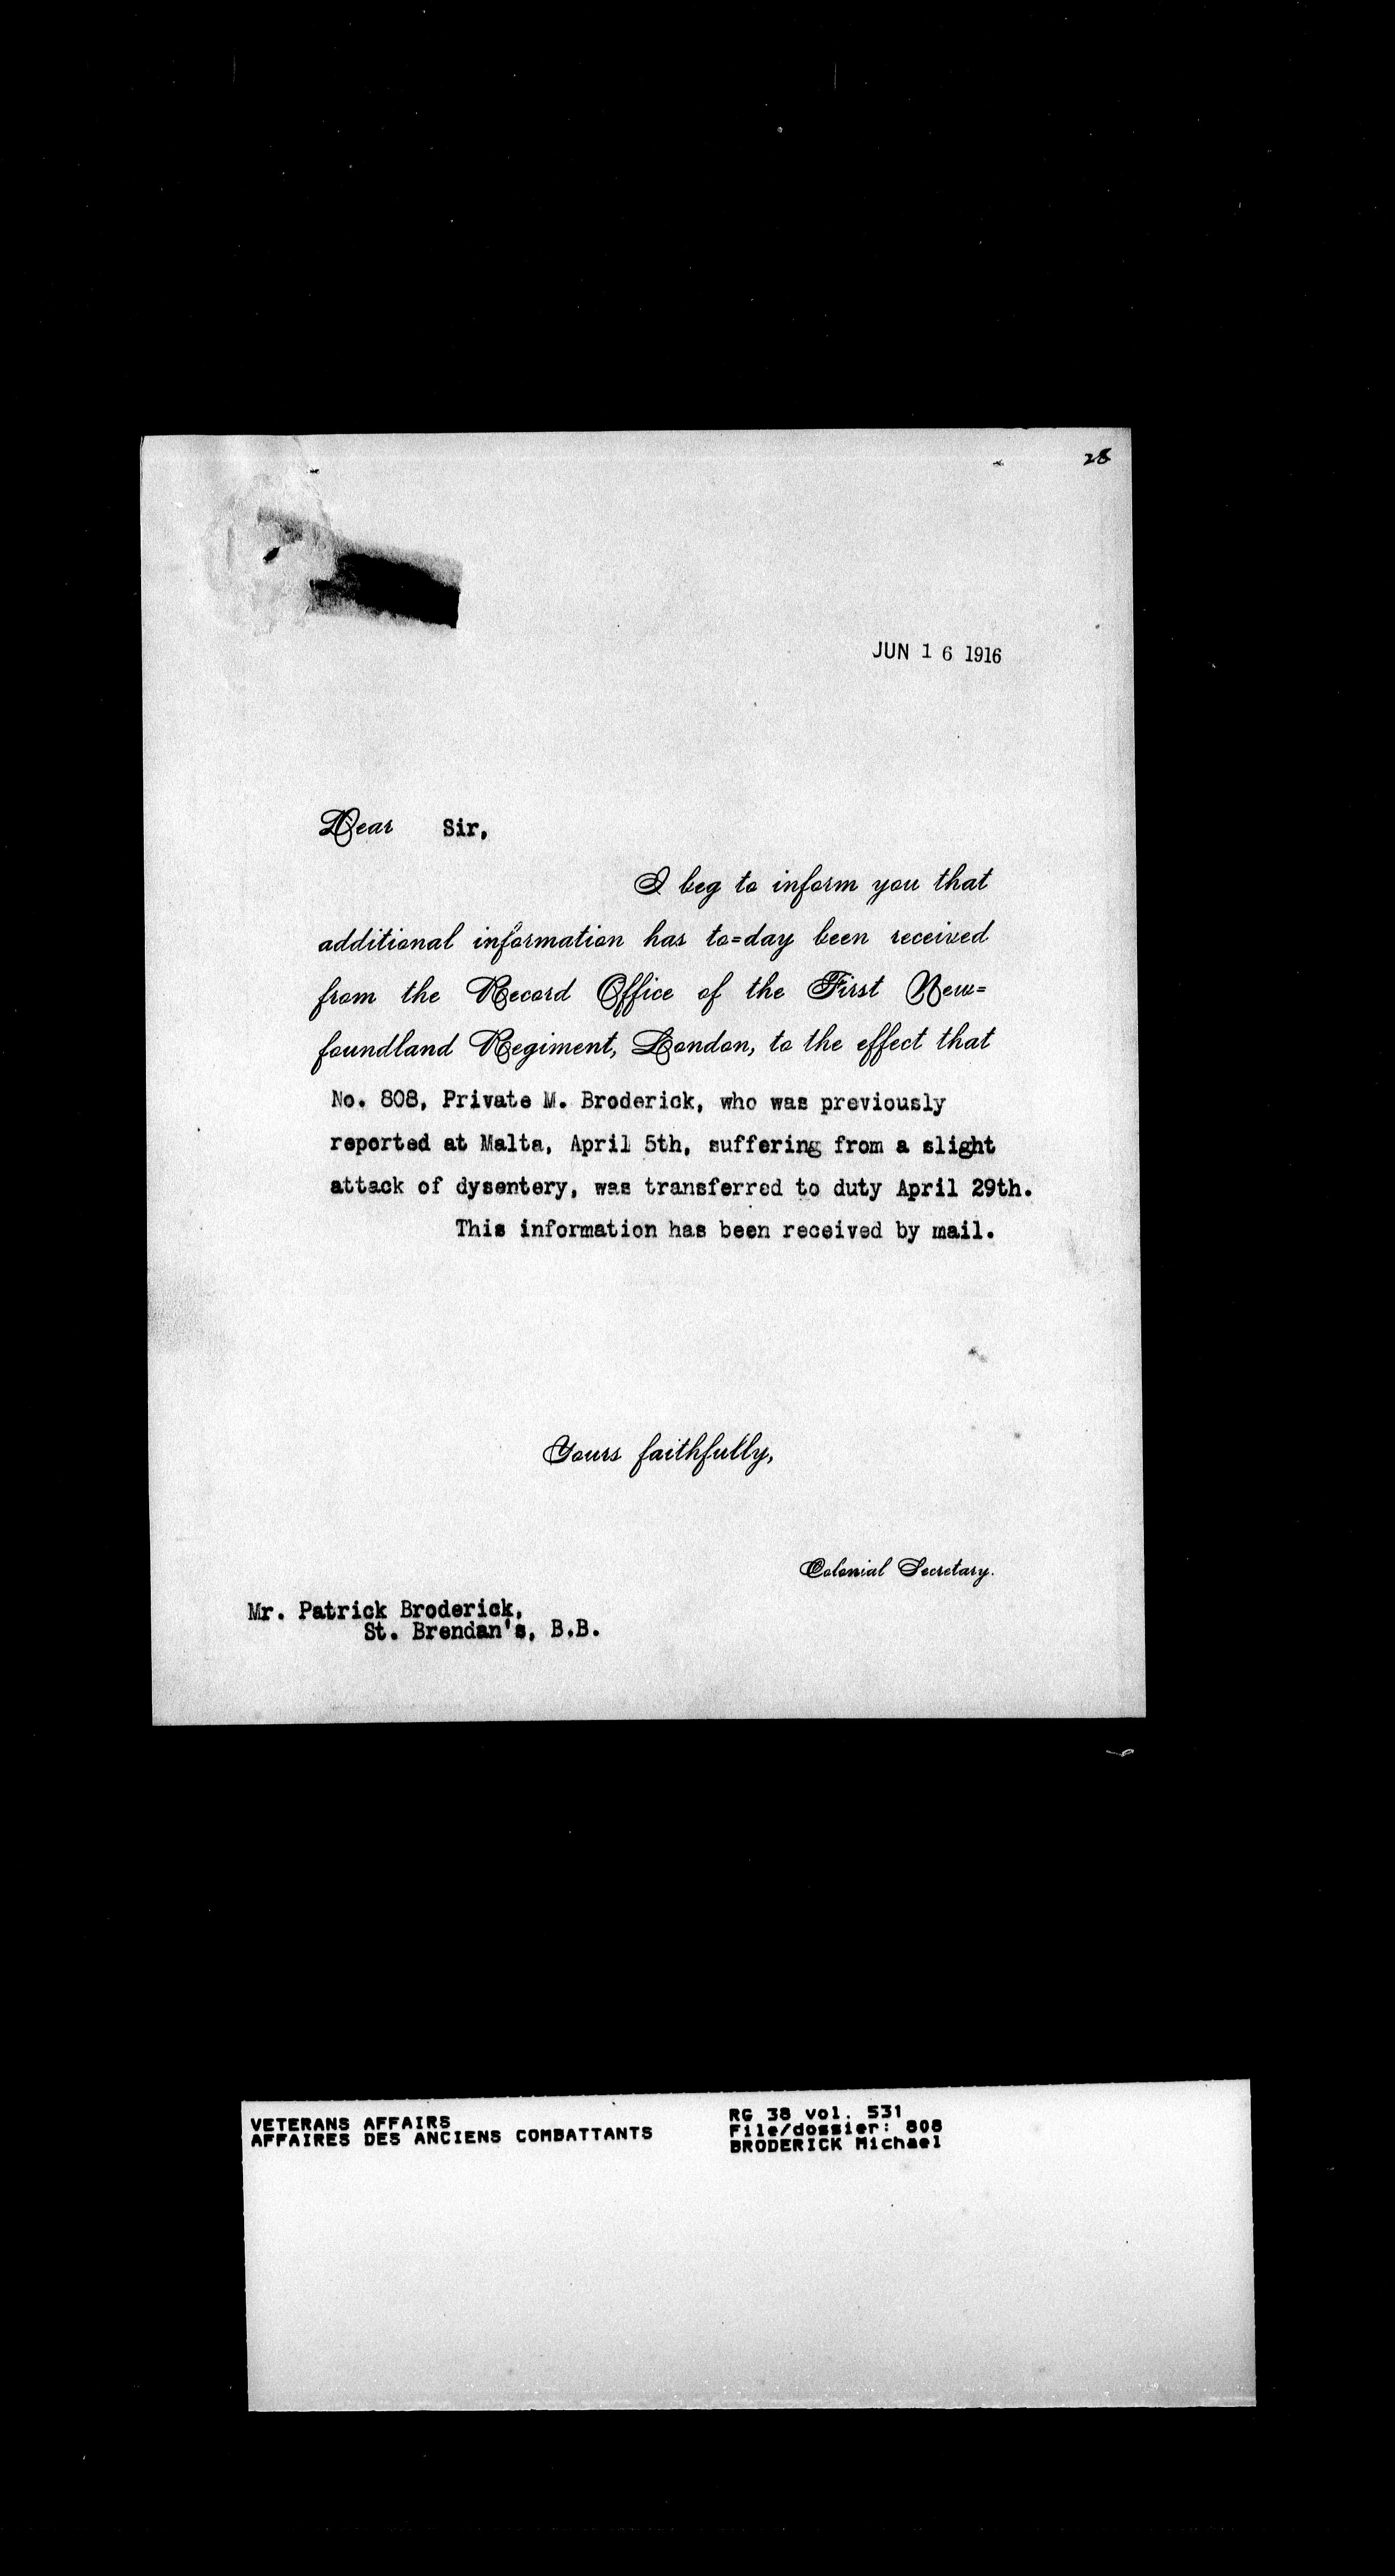 28
JUN 16 1916
Dear Sir,
I beg to inform you that
additional information has to=day been received
from the Record Office of the First New=
foundland Regiment, London, to the effect that
No. 808, Private M. Broderick, who was previously
reported at Malta, April 5th, suffering from a slight
attack of dysentery, was transferred to duty April 29th.
This information has been received by mail.
Yours faithfully,
Colonial Secretary.
Mr. Patrick Broderick,
St. Brendan's, B.B.
VETERANS AFFAIRS
AFFAIRES DES ANCIENS COMBATTANTS
RG 38 vol. 531
File/dossier: 808
BRODERICK Michael